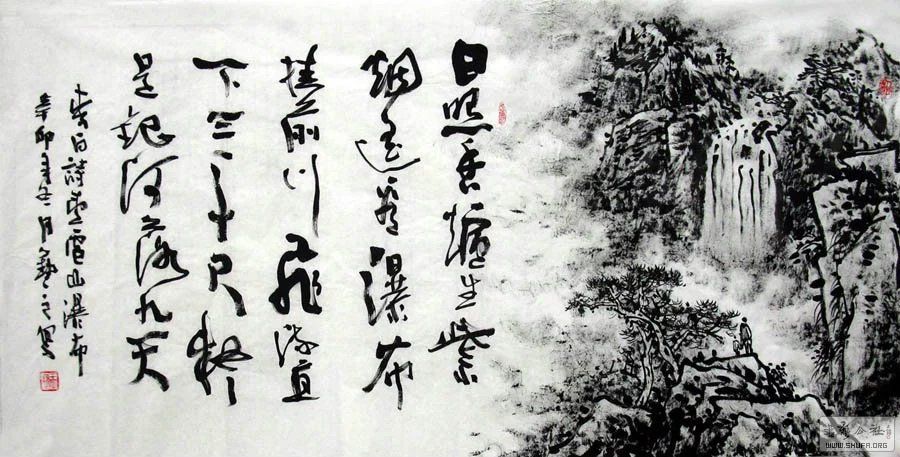 日照香爐生紫
烟遥看瀑布
挂前川飛流直
下三千尺疑
是銀河落九天
李白詩望廬山瀑布
辛卯年冬月之寫
WWW.SHUFA.ORG